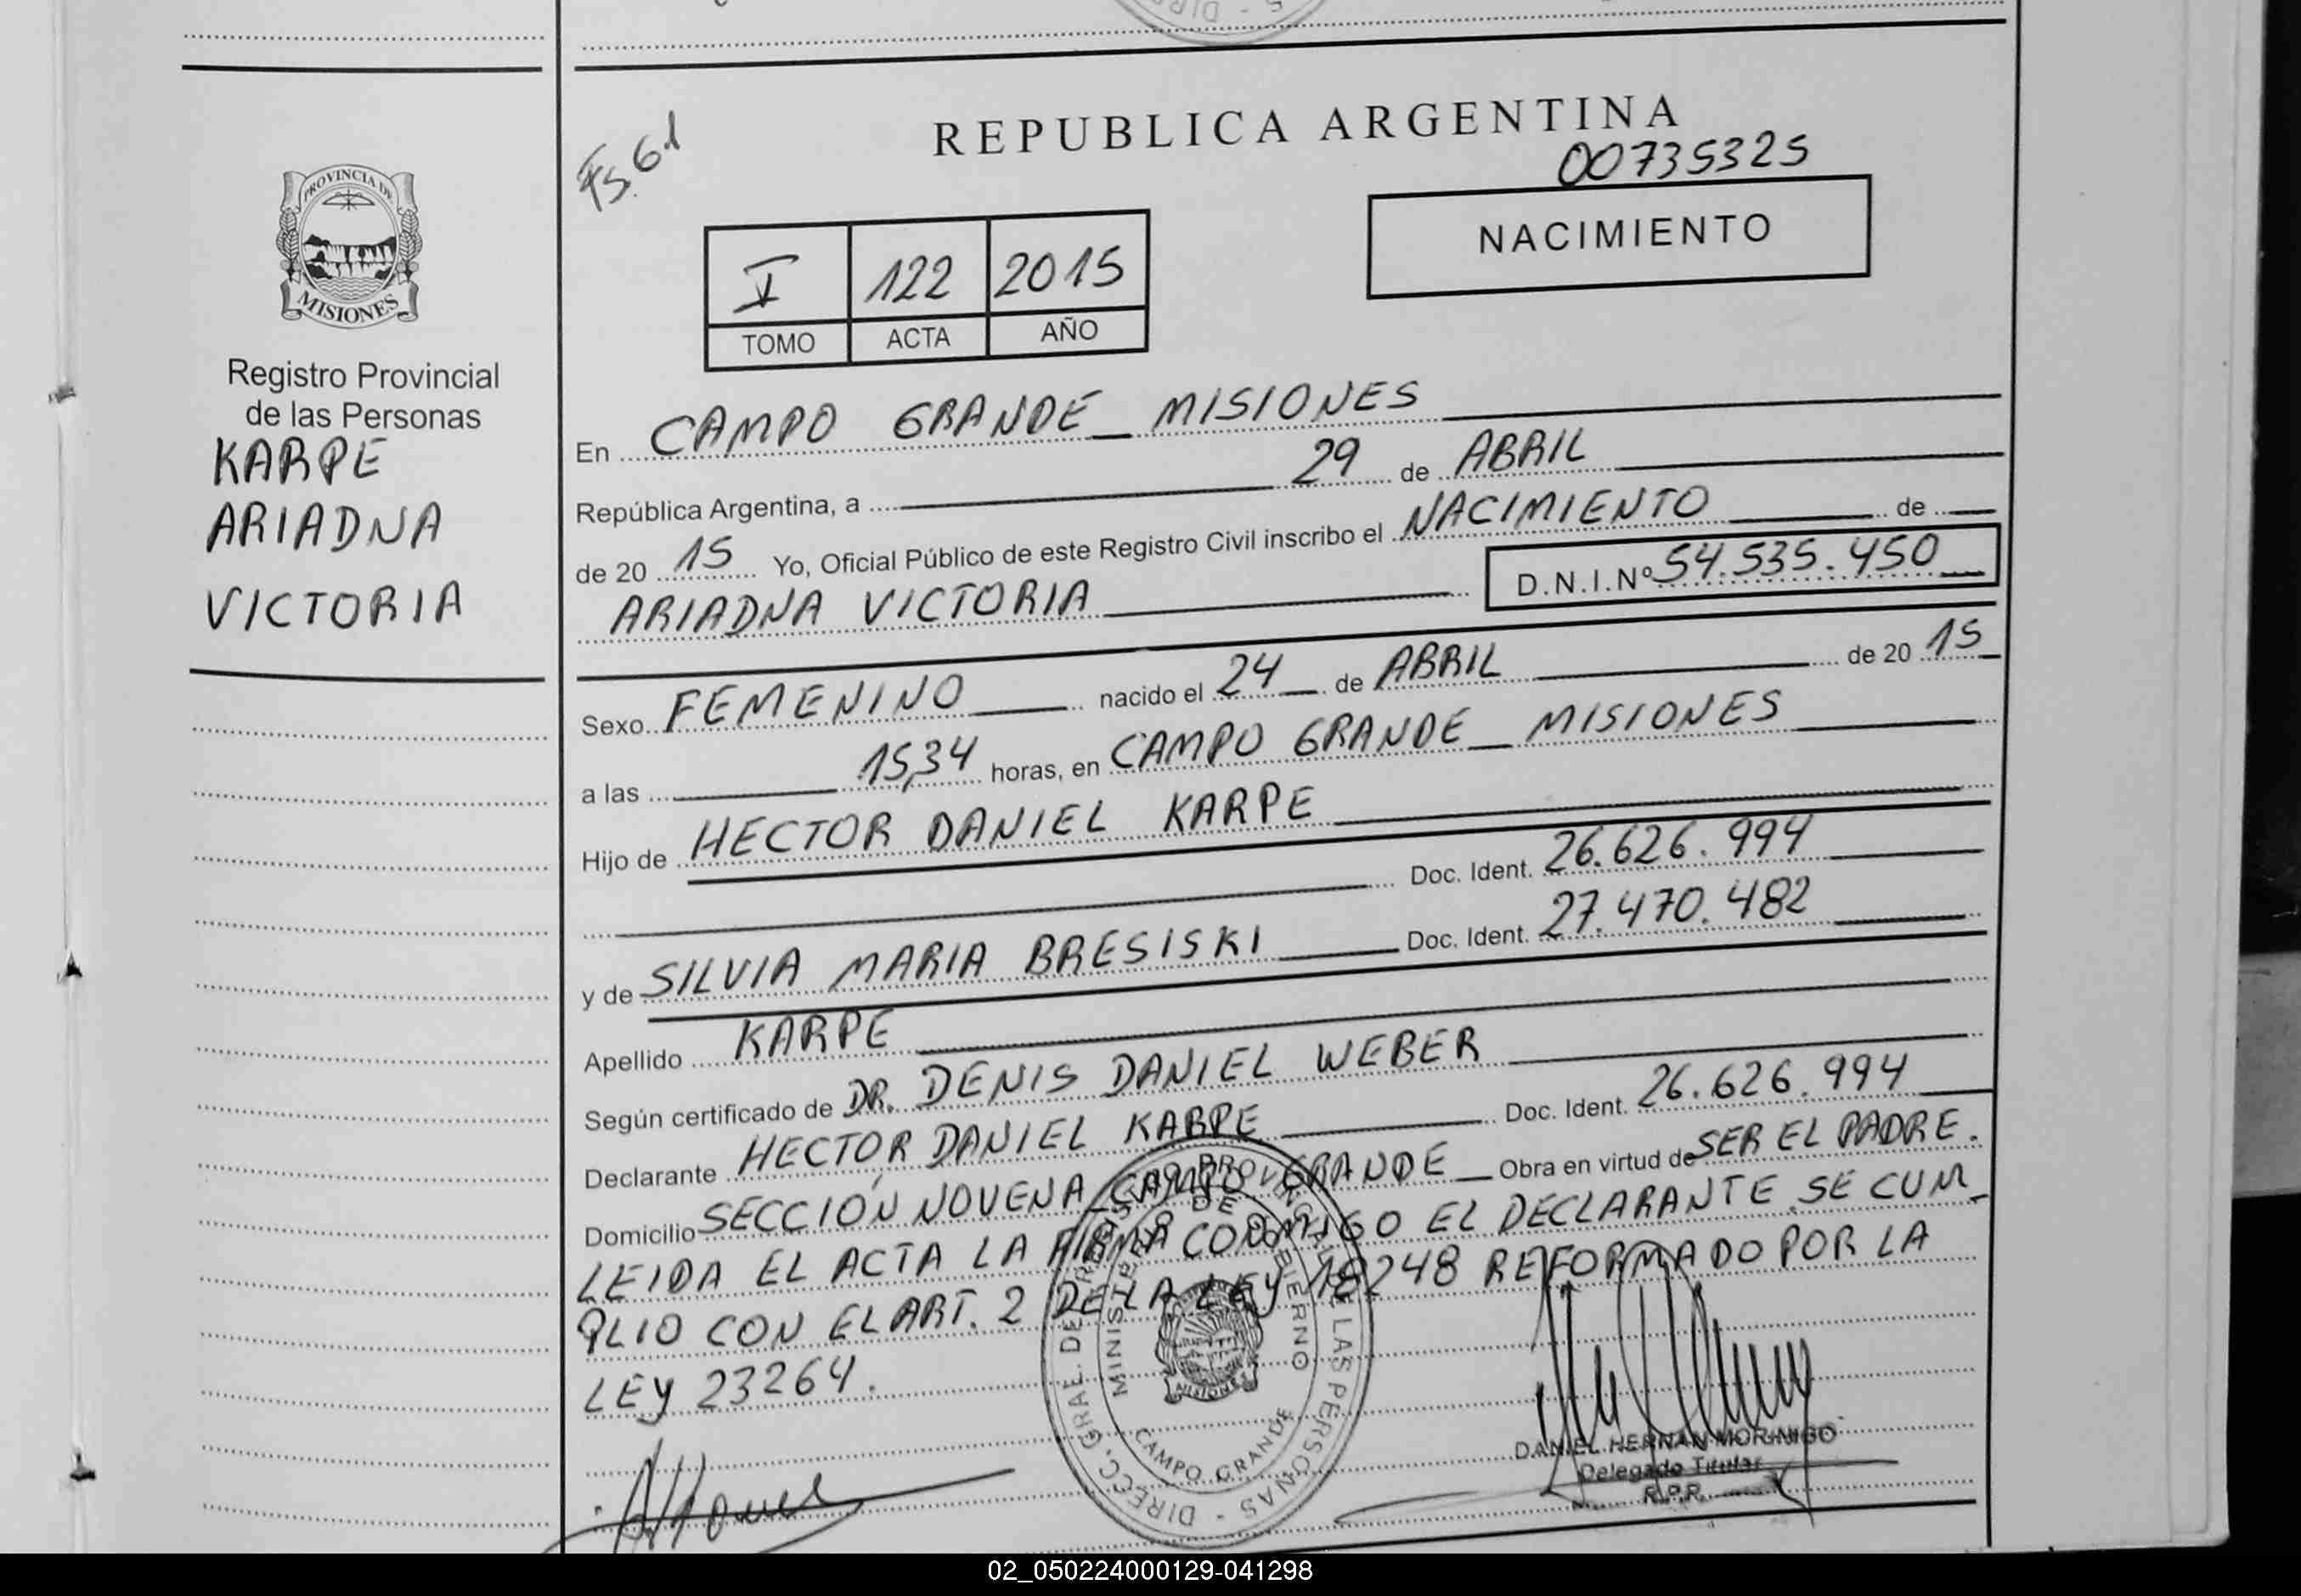 Fs. 61
REPUBLICA ARGENTINA
00735325
NACIMIENTO
I 122 2015
TOMO ACTA AÑO
PROVINCIA DE
MISIONES
Registro Provincial
de las Personas
KARPE
ARIADNA
VICTORIA
En CAMPO GRANDE _ MISIONES
República Argentina, a 29 de ABRIL
de 20 15 Yo, Oficial Público de este Registro Civil inscribo el NACIMIENTO de
ARIADNA VICTORIA D.N.I.Nº 54.535.450
Sexo FEMENINO nacido el 24 de ABRIL de 20 15
a las 15,34 horas, en CAMPO GRANDE _ MISIONES
Hijo de HECTOR DANIEL KARPE
Doc. Ident. 26.626.994
y de SILVIA MARIA BRESISKI Doc. Ident. 27.470.482
Apellido KARPE
Según certificado de DR. DENIS DANIEL WEBER
Declarante HECTOR DANIEL KARPE Doc. Ident. 26.626.994
Domicilio SECCIÓN NOVENA CAMPO GRANDE _ Obra en virtud de SER EL PADRE.
LEIDA EL ACTA LA FIRMA CONMIGO EL DECLARANTE. SE CUM_
PLIO CON EL ART. 2 DE LA LEY 18248 REFORMADO POR LA
LEY 23264.
DIRECC. GRAL. DEL REGISTRO PROVINCIAL DE LAS PERSONAS -
MINISTERIO DE GOBIERNO
MISIONES
CAMPO GRANDE
DANIEL HERNAN MORINIGO
Delegado Titular
R.P.P.
02_050224000129-041298